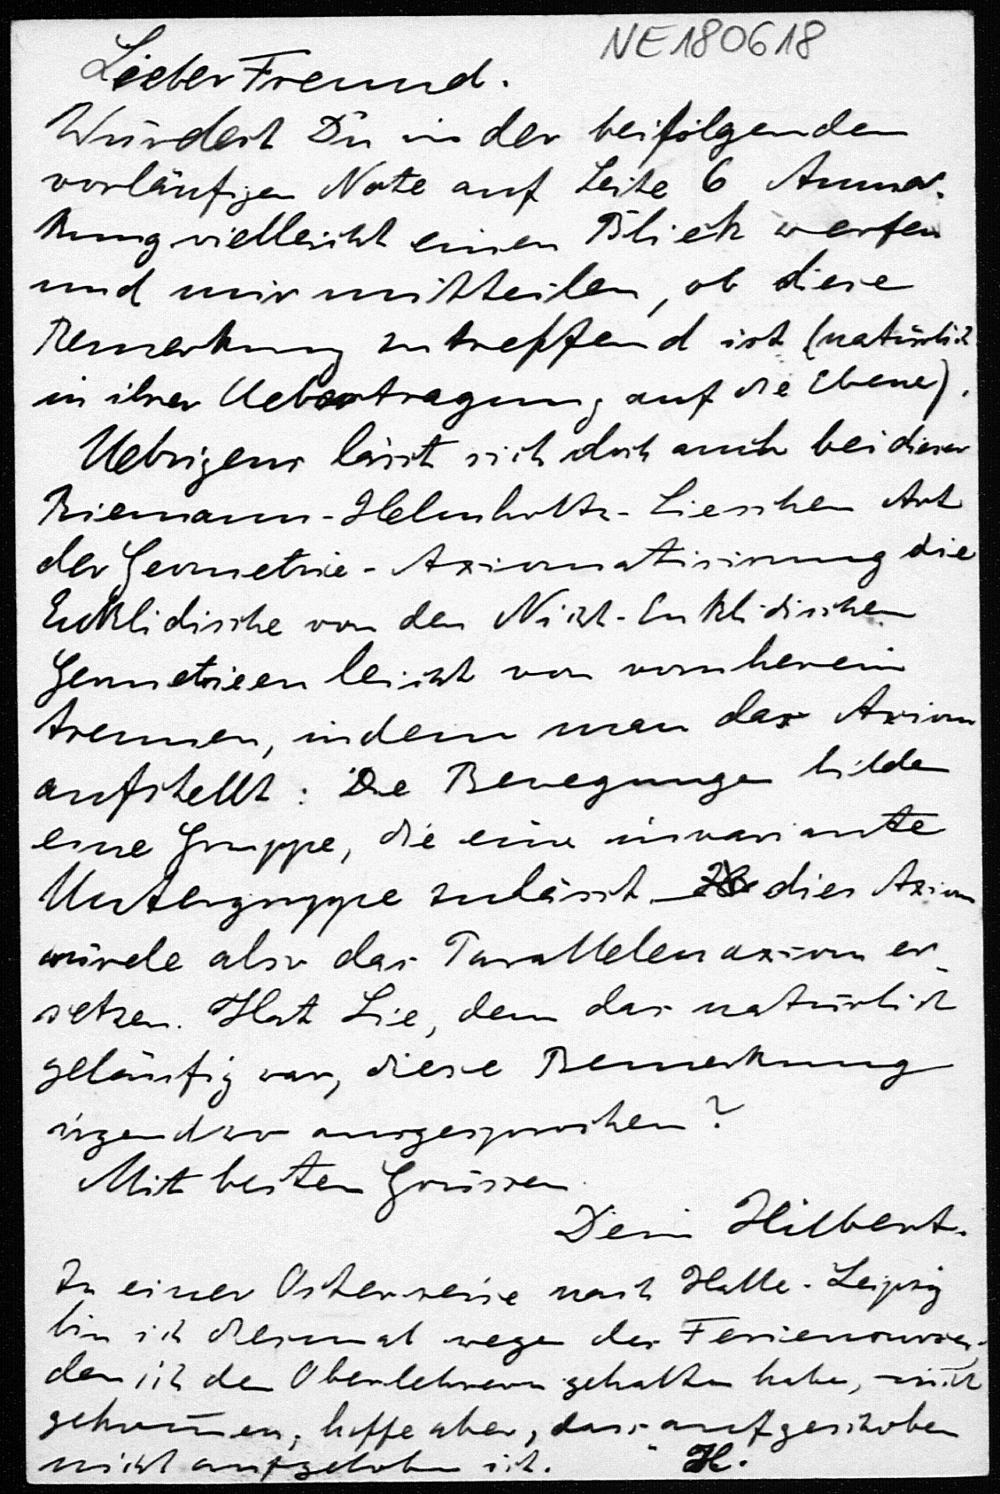 NE180618
Lieber Freund.
Würdest Du in der beifolgenden
vorläufigen Note auf Seite 6 Anmer-
kung vielleicht einen Blick werfen
und mir mittheilen, ob diese
Bemerkung zutreffend ist (natürlich
in ihrer Uebertragung auf die Ebene).
Uebrigens lässt sich doch auch bei dieser
Riemann-Helmholtz-Lieschen Art
der Geometrie-Axiomatisirung die
Euklidische von den Nicht-Euklidischen
Geometrieen leicht von vornherein
trennen, indem man das Axiom
aufstellt: Die Bewegungen bilden
eine Gruppe, die eine invariante
Untergruppe zulässt. dies Axiom
würde also das Parallelenaxiom er-
setzen. Hat Lie, dem das natürlich
geläufig war, diese Bemerkung
irgendwo ausgesprochen?
Mit besten Grüssen
Dein Hilbert.
Zu einer Osterreise nach Halle-Leipzig
bin ich diesmal wegen des Feriencurses,
den ich den Oberlehrern gehalten habe, nicht
gekommen, hoffe aber, dass aufgeschoben
nicht aufgehoben ist. H.